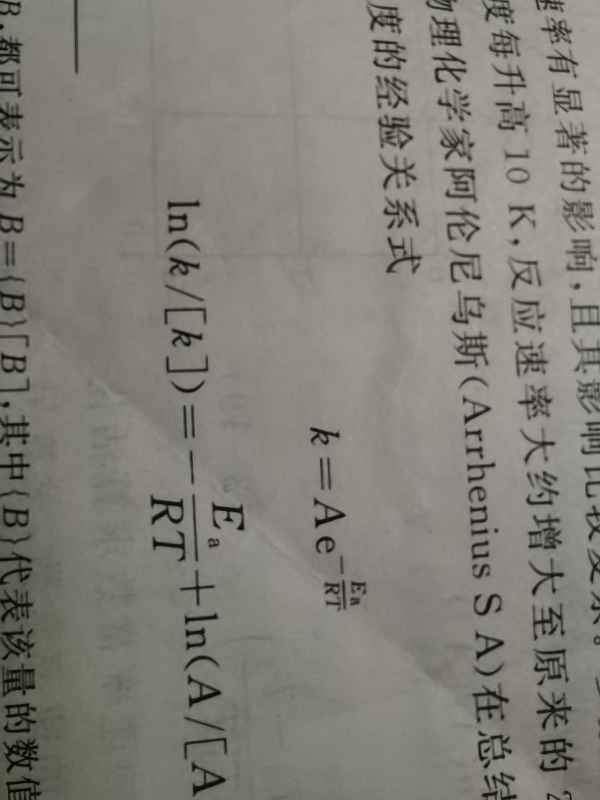 速率有显著的影响,且其影响比较复杂。
度每升高 10 K,反应速率大约增大至原来的 2
物理化学家阿伦尼乌斯(Arrhenius S A)在总结
度的经验关系式
k=Ae^{-\frac{Ea}{RT}}
ln(k/[k])=-\frac{E_a}{RT}+ln(A/[A
B,都可表示为 B={B}[B],其中{B}代表该量的数值